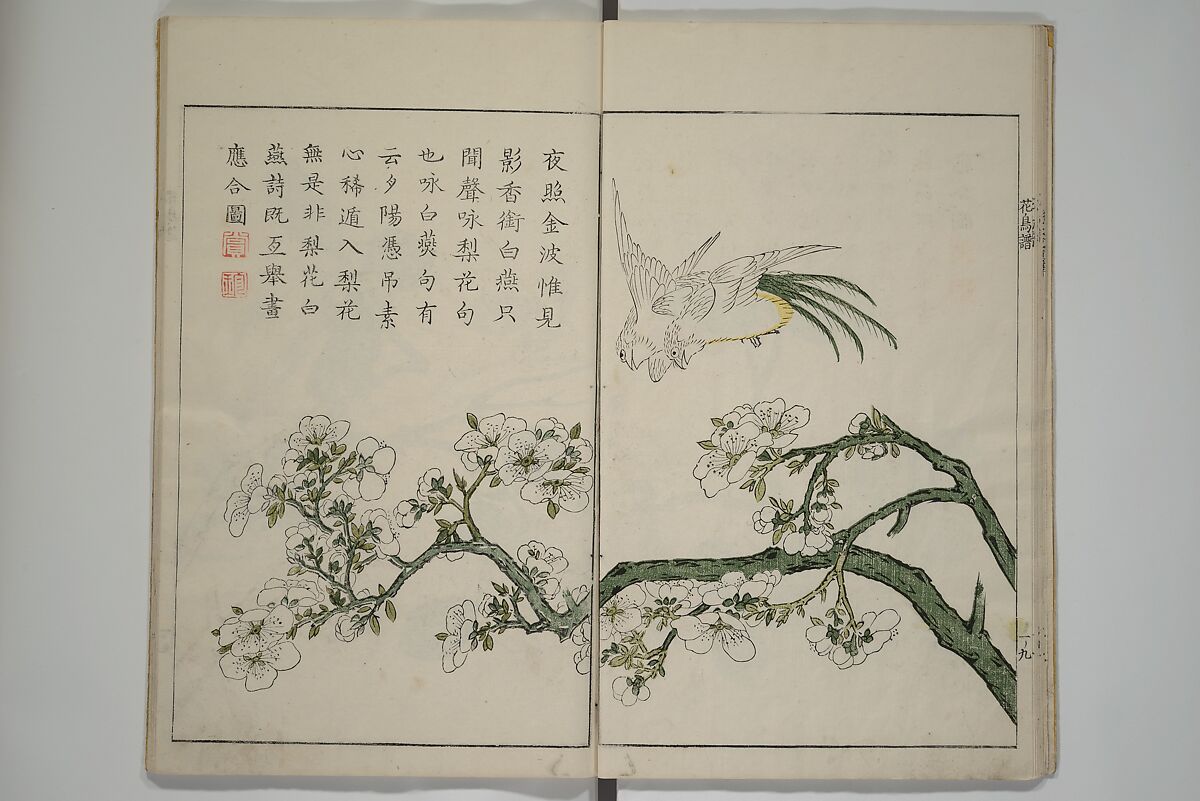 夜照金波惟見
影香銜白燕只
聞聲咏梨花句
也咏白燕句有
云夕陽憑吊素
心稀遁入梨花
無是非梨花白
燕詩既互舉畫
應合圖
賞
花鳥譜
一ノ九